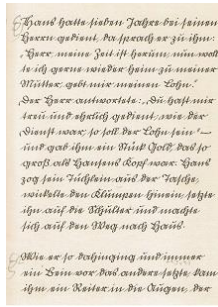 Hans hatte sieben Jahre bei seinem
Herrn gedient, da sprach er zu ihm:
„Herr, meine Zeit ist herum, nun woll-
te ich gerne wieder heim zu meiner
Mutter, gebt mir meinen Lohn."
Der Herr antwortete: „Du hast mir
treu und ehrlich gedient, wie der
Dienst war, so soll der Lohn sein" –
und gab ihm ein Stück Gold, das so
groß als Hansens Kopf war. Hans
zog sein Tüchlein aus der Tasche,
wickelte den Klumpen hinein, setzte
ihn auf die Schulter und machte
sich auf den Weg nach Haus.
Wie er so dahinging und immer
ein Bein vor das andere setzte, kam
ihm ein Reiter in die Augen, der